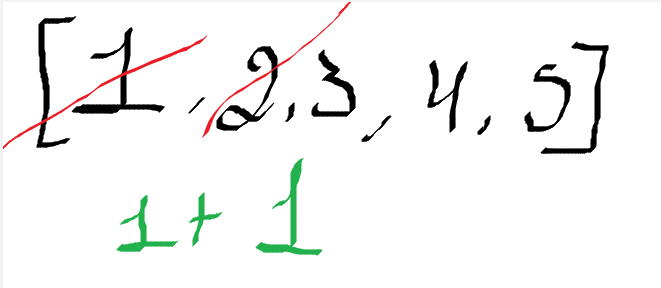 [1, 2, 3, 4, 5]
1 + 1